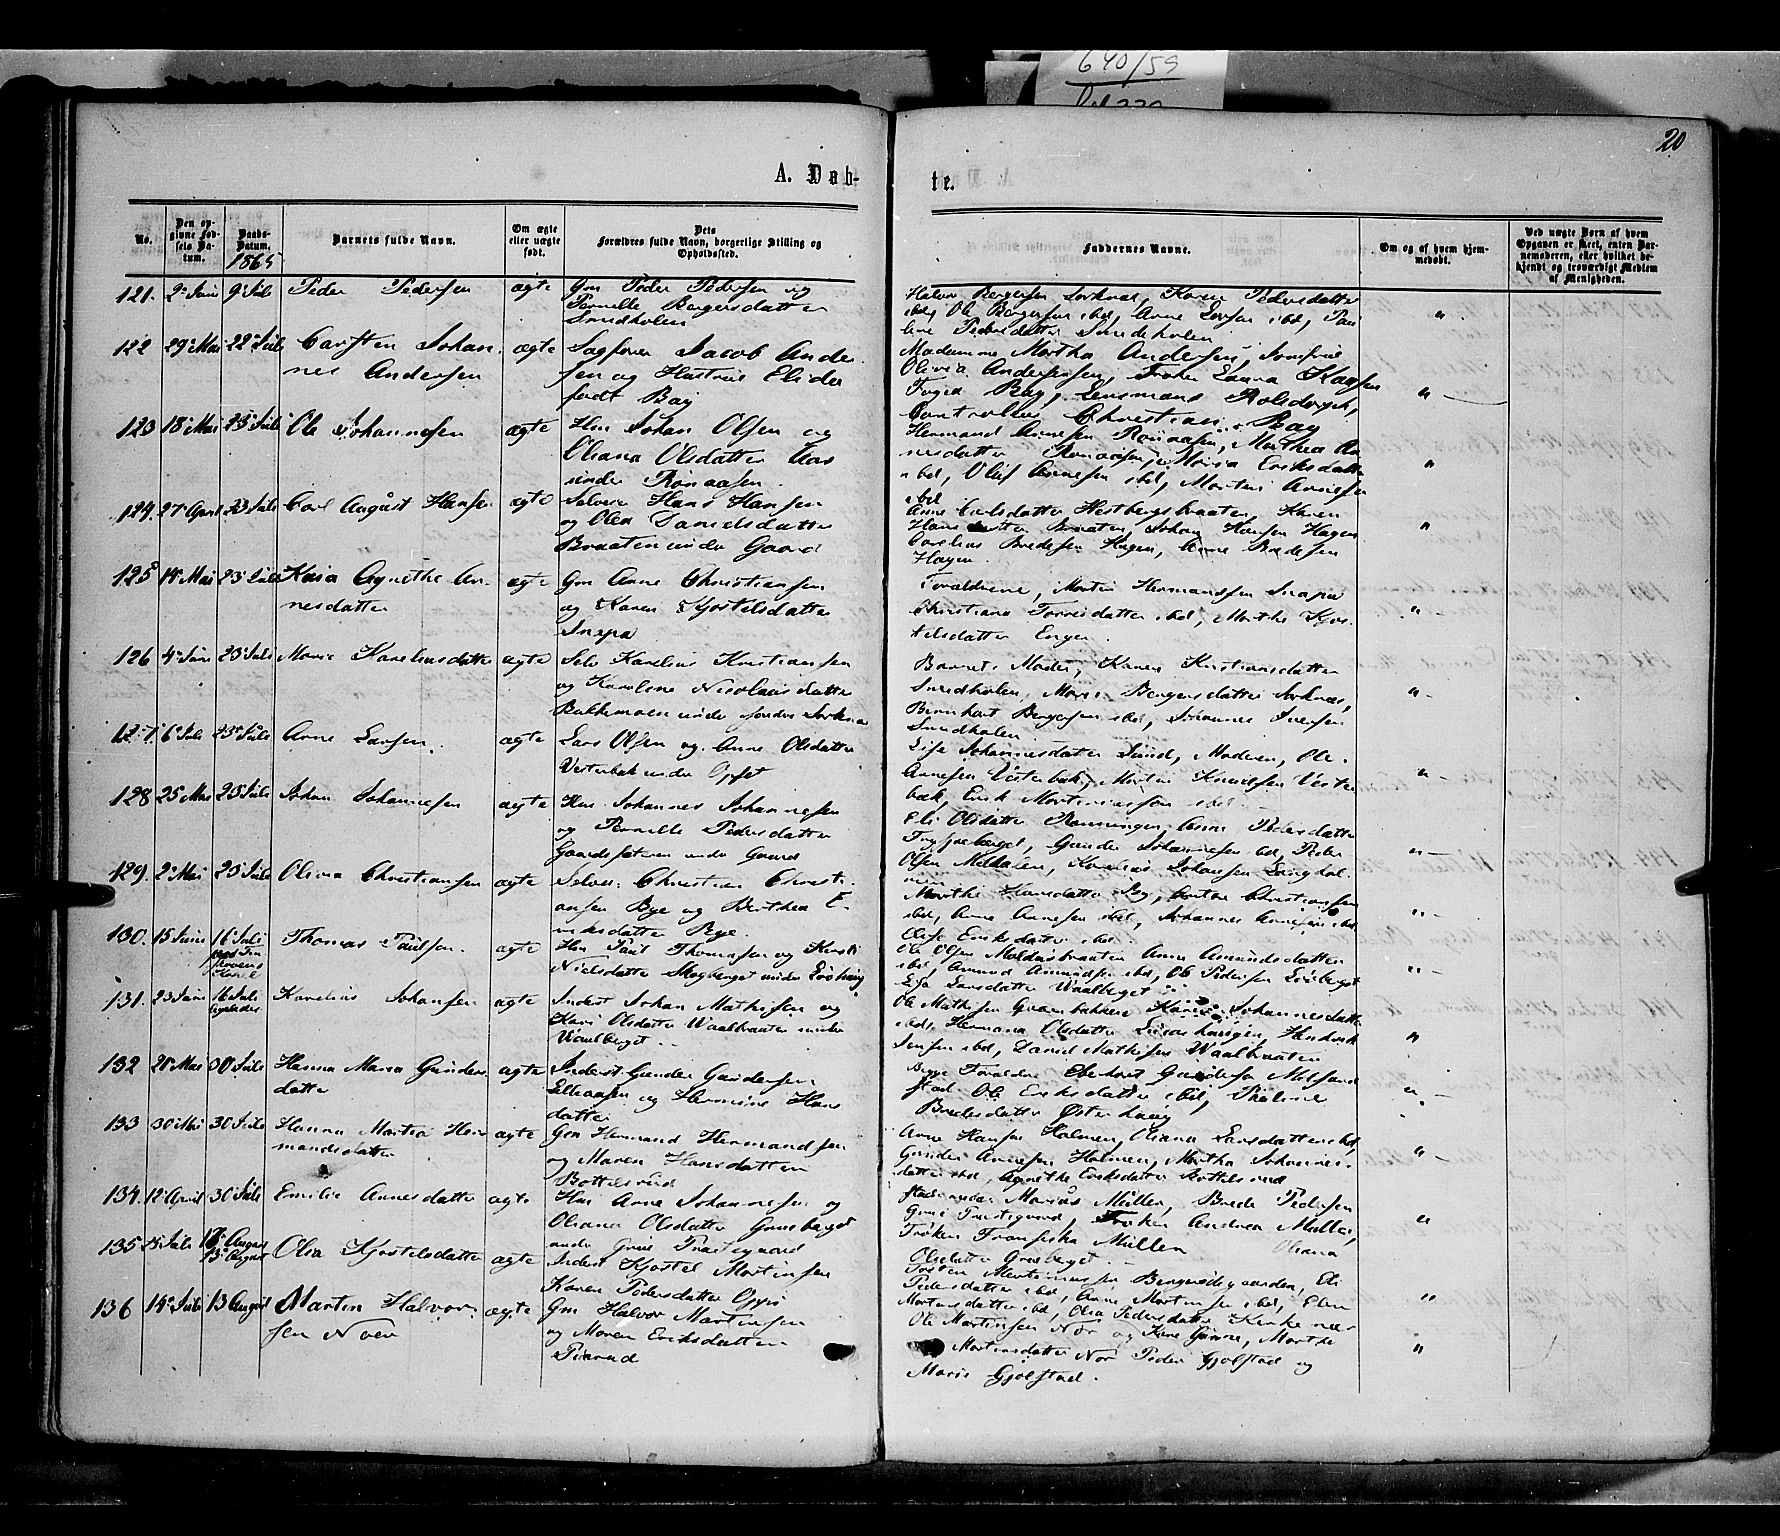 640/59
20
A. Døb-
te.
No.
Den op-
givne Fød-
sels Da-
tum.
Daabs-
Datum.
1865
Barnets fulde Navn.
Om ægte
eller uægte
født.
Dets
Forældres fulde Navn, borgerlige Stilling og
Opholdssted.
Faddernes Navne.
Om og af hvem hjem-
medøbt.
Ved uægte Børn af hvem
Opgaven er skeet, enten Bar-
nemoderen, eller hvilket be-
kjendt og troværdigt Medlem
af Menigheden.
121. 2 Juni 9 Juli Peder Pedersen ægte Gm Peder Pedersen og
Pernelle Bergersdatter
Smedholen
Halvor Bergersen Sorknæs, Karen Pedersdatter
ibd, Ole Bergersen ibd, Arne Larsen ibd, Pau
line Pedersdatter Smedholen
122 29 Mai 22 Juli Carsten Johan
nes Andersen ægte Sagfører Jacob Ander
sen og Hustrue Elida
født Bay
Madamme Martha Andersen, Jomfrue
Olivia Andersen, Frøken Laura
Foged Bay, Lensmand
Christian Bay
123 18 Mai 23 Juli Ole Johannesen ægte Hm Johan Olsen og
Oliana Olsdatter Aas
under Rønaasen
Hermand Arnesen Rønaasen, Marthea Ar
nesdatter Rønaasen, Maria Eriksdatter
ibd, Oluf Arnesen ibd, Morten Arnesen
ibd
124. 27 April 23 Juli Carl August Hansen ægte Selveier Hans Hansen
og Olea Danielsdatter
Braaten under Gaard
Anne Carlsdatter Hestbergsbraaten, Karen
Hansdatter Braaten, Johan Hansen Hagen
Cornelius Bredesen Hagen, Arne Bredesen
Hagen.
125 18 Mai 23 Juli Kaia Agnethe Ar-
nesdatter ægte Gm Arne Christiansen
og Karen Kjostelsdatter
Snapa
Forældrene, Martin Hermandsen Snapa
Christiana Torersdatter ibd, Marthe Kjos-
telsdatter Enger.
126 4 Juni 23 Juli Marie Kareliusdatter ægte Selv Karelius Kristiansen
og Karelene Nicolaisdatter
Bakkemoen under søndre Sorknæs
Barnets Moder, Karen Kristiansdatter
Smedholen, Maris Bergersdatter Sorknæs,
Bernhart Bergersen ibd, Johannes Iversen
Smedholen
127. 6 Juli 23 Juli Arne Larsen. ægte Lars Olsen og Anne Olsdatter
Vesterbak under Opset
Lisa Johannesdatter Sund, Moderen, Ole
Arnesen Vesterbak, Martin Knudsen Vester
bak, Erik Mortiniussen ibd.
128 25 Mai 23 Juli Johan Johannesen ægte Hm Johannes Johannesen
og Pernelle Pedersdatter
Gaardsæteren under Gaard
Eli Olsdatter Rønningen, Anne Pedersdatter
Gunder Johannesen ibd, Peder
Olsen Meldalen, Karelius Johansen
129. 2 Mai 23 Juli Olena Christiansen ægte Selveier Christian Christi
ansen Bye og Berthea E-
riksdatter Bye.
Marthe Hansdatter By, Christiansen
ibd, Anne Arnesen ibd, Johannes Arnesen ibd
Olea Eriksdatter ibd.
130. 15 Juni 16 Juli Thomas Paulsen. ægte Hm Paul Thomasen og Kersti
Nielsdatter Skogberget under
Ole Olsen Anne Amundsdatter
ibd, Amund Amundsen ibd, Ole Pedersen
Lisa Larsdatter Waalberget
131. 23 Juni 16 Juli Karelius Johansen ægte Inderst Johan Mathisen og
Kari Olsdatter Waalbraaten under
Waalberget
Ole Mathisen Graanbakken Karen Johannesdatter
ibd, Hermana Olsdatter
Jensen ibd, Daniel Mathisen Waalbraaten
132 28 Mai 30 Juli Hanna Maria Gunders
datter ægte Inderst Gunder Gundersen
og Hermine Hans
datter
Begge Forældre Gundersen
Ole Eriksdatter ibd,
Bredesdatter Østerhaug
133 30 Mai 30 Juli Hanna Martea Her
mandsdatter ægte Gm Hermand Hermandsen
og Maren Hansdatter
Bottelsrud
Arne Hansen Holmen, Oliana Larsdatter ibd,
Gunder Arnesen Holmen, Martha Johannes-
datter ibd, Agnethe Eriksdatter Bottelsrud
134. 12 April 30 Juli Emilie Arnesdatter ægte Hm Arne Johannesen og
Oliana Olsdatter Grueberget
under Grue Præstegaard
Marius Müller, Brede Pedersen
Grue Præstegaard, Frøken Andrea Müller,
Frøken Franziska Müller Oliana
Olsdatter Grueberget.
135 25 Juli 13 August Olea Kjostelsdatter ægte Inderst Kjostel Mortinsen
Karen Pedersdatter
Torsten Mortinussen Eli
Pedersdatter ibd, Arne Mortinsen ibd, Elen
Mortinsdatter ibd, Olea Pedersdatter Kirkenær
136 14 Juli 13 August Martin Halvor
sen Noer ægte Gm Halvor Martinsen
og Maren Eriksdatter
Ole Martinsen Nor og Kone Marthe
Mortensdatter Nor Peder Gjølstad og
Marie Gjølstad.